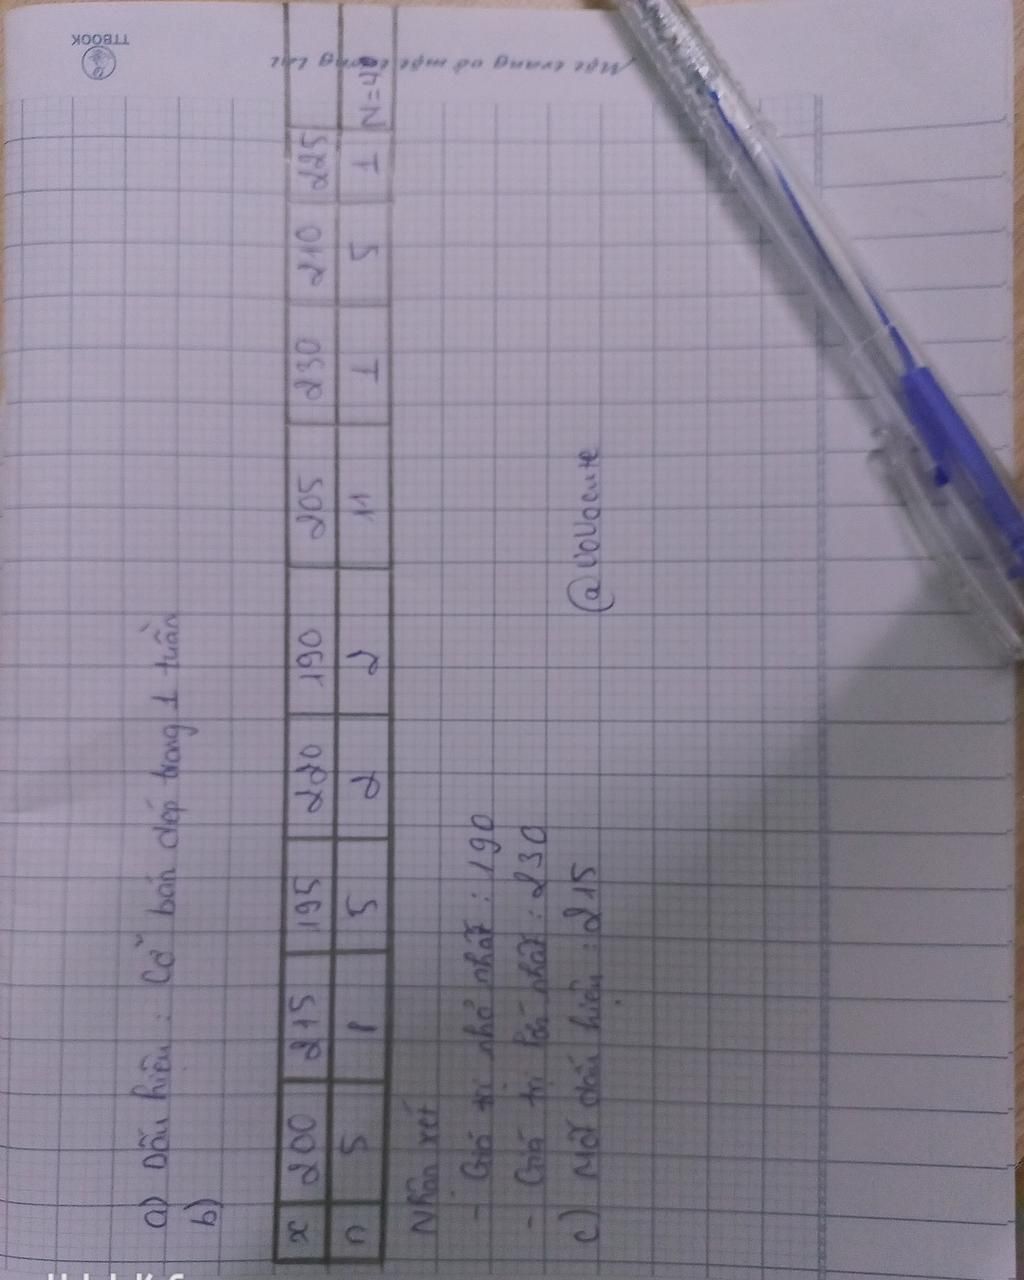 a) Dấu hiệu : Cỡ bán dép trong 1 tuần
b)
x 200 215 195 220 190 205 230 210 225
n 5 8 5 2 2 11 1 5 1 N=40
Nhận xét
- Giá trị nhỏ nhất : 190
- Giá trị lớn nhất : 230
c) Mốt dấu hiệu : 215
@vovocute
TTBOOK